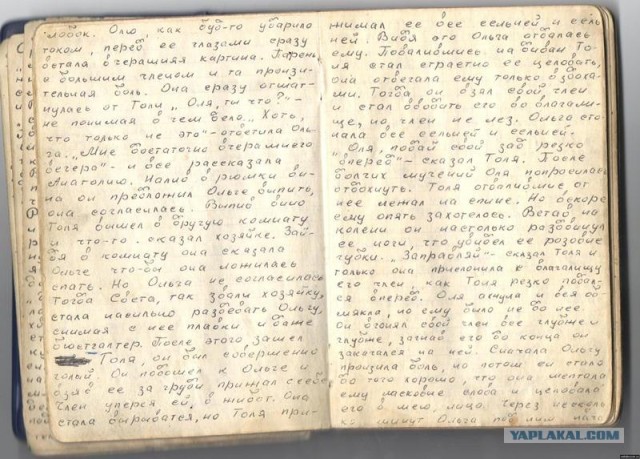 лобок. Олю как буд-то ударило
током, перед ее глазами сразу
встала вчерашняя картина. Парень
с большим членом и та пронзи-
тельная боль. Она сразу отшат-
нулась от Толи „Оля, ты что?"-
не понимая в чем дело. „Хоть,
что только не это"- ответила Оль-
га. „Мне достаточно вчерашнего
вечера"- и все рассказала
Анатолию. Налив в рюмки ви-
на он предложил Ольге выпить,
она согласилась. Выпив вино
Толя вышел в другую комнату
и что-то сказал хозяйке. Зай-
дя в комнату она сказала
Ольге что-бы она ложилась
спать. Но Ольга не согласилась
Тогда Света, так звали хозяйку,
стала насильно раздевать Ольгу,
снимая с нее плавки и даже
бюстгалтер. После этого зашел
Толя, он был совершенно
голый. Он подошел к Ольге и
взяв ее за груди прижал к себе
член уперся ей в живот. Она
стала вырыватся, но Толя при-
жимал ее все сильней и силь
ней. Видя это Ольга отдалась
ему. Повалившись на диван То-
ля стал страстно ее целовать,
она отвечала ему только вздоха-
ми. Тогда он взял свой член
и стал вводить его во влагали-
ще, но член не лез. Ольга сто-
нала все сильней и сильней.
„Оля, подай свой зад резко
вперед"- сказал Толя. После
долгих мучений Оля попросилась
отдохнуть. Толя отвалившись от
нее лежал на спине. Но вскоре
ему опять захотелось. Встав на
колени он настолько раздвинул
ее ноги, что увидел ее розовые
губки. „Заправляй"- сказал Толя и
только она прислонила к влагалищу
его член, как Толя резко подал-
ся вперед. Оля ахнула и вся об
мякла, но ему было не до нее
Он вгонял свой член все глубже и
глубже, загнав его до конца он
закачался на ней. Сначала Ольгу
пронзила боль, но потом ей стало
до того хорошо, что она шептала
ему ласковые слова и целовала
его в шею, лицо. Через несколь
ко минут Ольга под ним
YAPLAKAL.COM